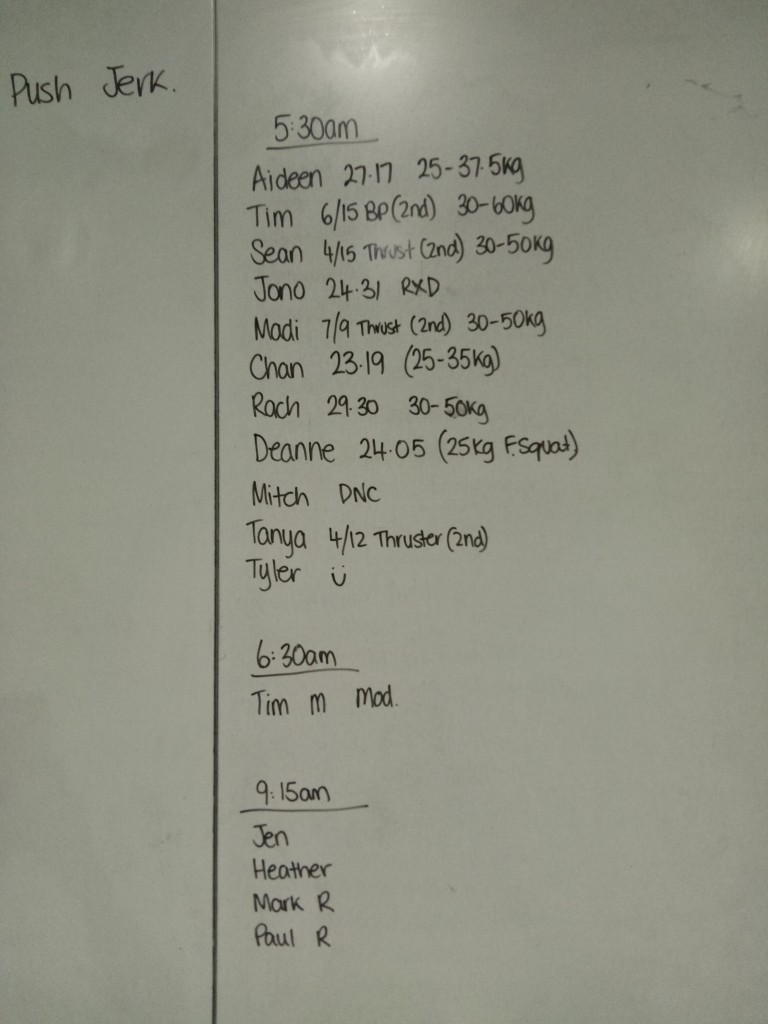 Push Jerk.
5:30am
Aideen 27.17 25-37.5kg
Tim 6/15 BP (2nd) 30-60kg
Sean 4/15 Thrust (2nd) 30-50kg
Jono 24.31 RXD
Madi 7/9 Thrust (2nd) 30-50kg
Chan 23.19 (25-35kg)
Rach 29.30 30-50kg
Deanne 24.05 (25kg F.Squat)
Mitch DNC
Tanya 4/12 Thruster (2nd)
Tyler Ü
6:30am
Tim M Mod.
9:15am
Jen
Heather
Mark R
Paul R